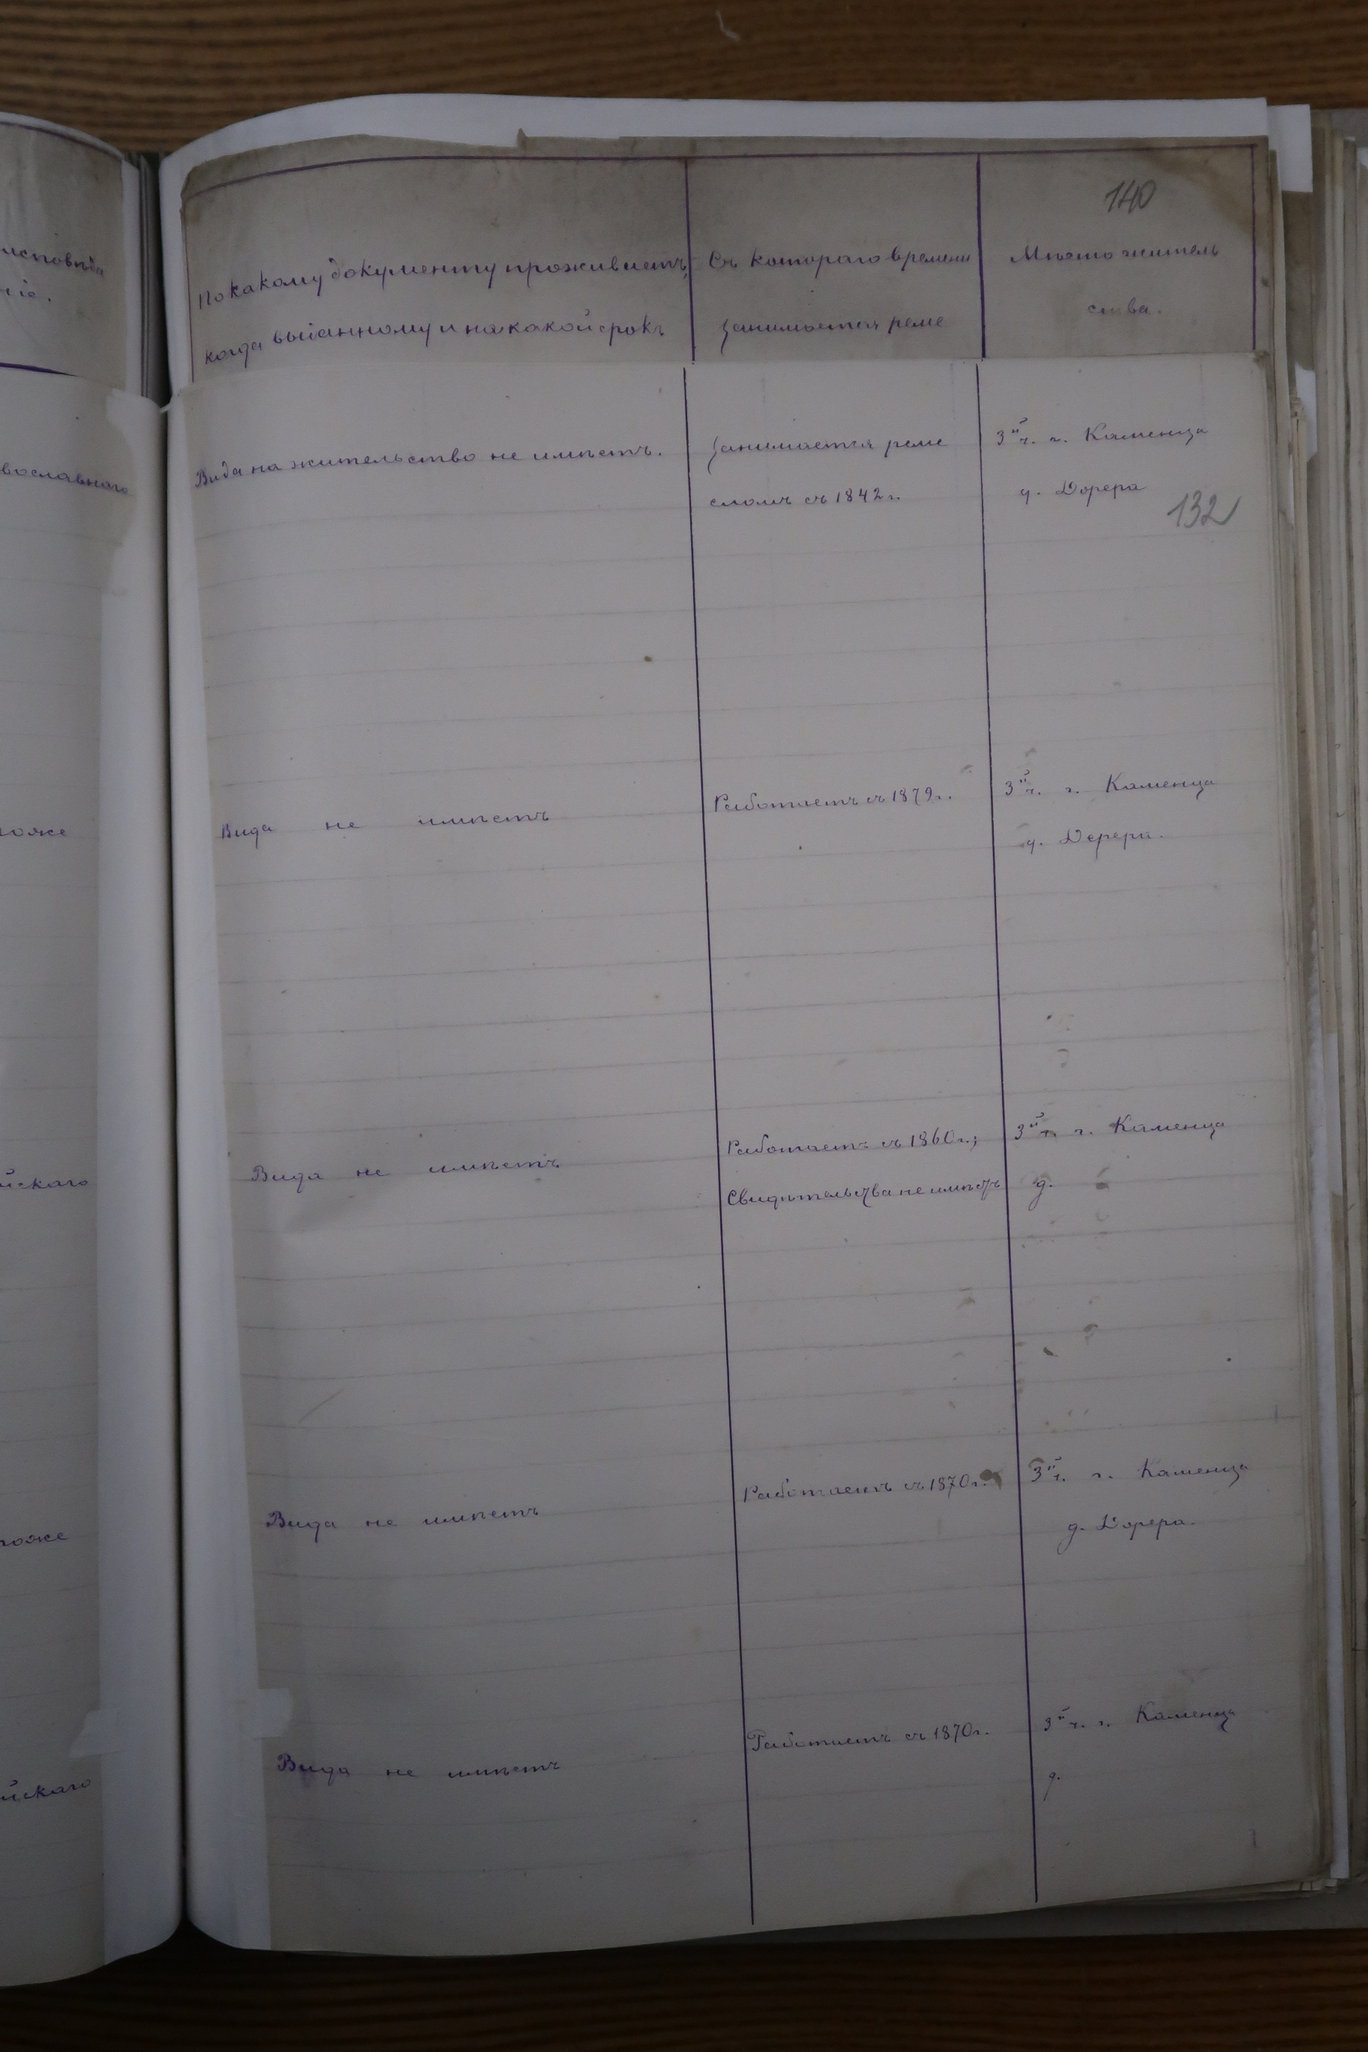 исповѣда
ніе.
140
По какому документу проживаетъ,
когда выданному и на какой срокъ
Съ котораго времени
занимается реме
Мѣсто житель
ства.
вославнаго
Вида на жительство не имѣетъ.
занимается реме
сломъ съ 1842 г.
3й ч. г. Каменца
д. Дорера
132
тоже
Вида не имѣетъ
Работаетъ съ 1879 г.
3й ч. г. Каменца
д. Дорера.
йскаго
Вида не имѣетъ
Работаетъ съ 1860 г.;
Свидѣтельства не имѣетъ
3й ч. г. Каменца
д.
тоже
Вида не имѣетъ
Работаетъ съ 1870 г.
3й ч. г. Каменца
д. Дорера.
йскаго
Вида не имѣетъ
Работаетъ съ 1870 г.
3й ч. г. Каменца
д.